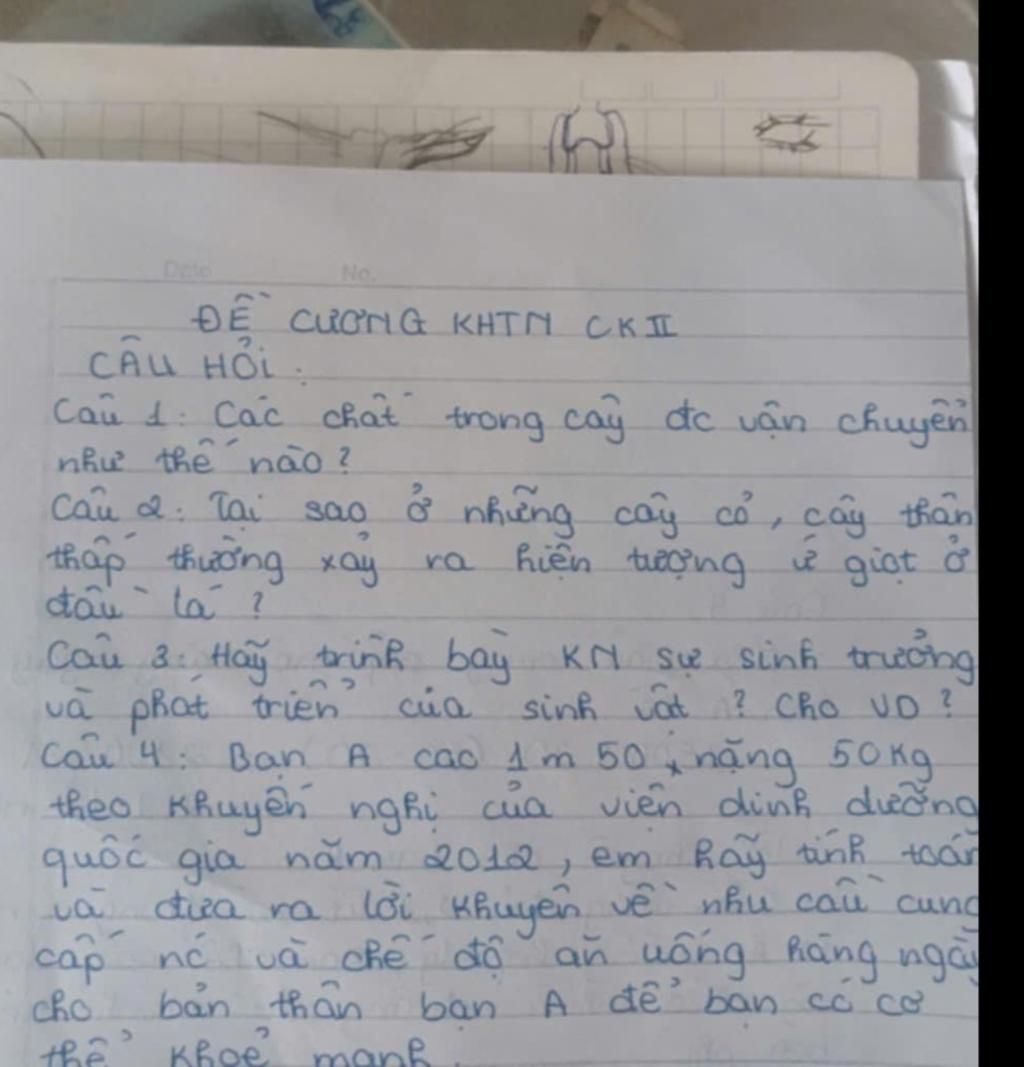 Date No.
ĐỀ CƯƠNG KHTN CKII
CÂU HỎI:
Câu 1: Các chất trong cây đc vận chuyển
như thế nào?
Câu 2: Tại sao ở những cây cỏ, cây thân
thấp thường xảy ra hiện tượng ứ giọt ở
đầu lá?
Câu 3: Hãy trình bày KN sự sinh trưởng
và phát triển của sinh vật? Cho VD?
Câu 4: Bạn A cao 1m 50, nặng 50kg
theo khuyến nghị của viện dinh dưỡng
quốc gia năm 2012, em hãy tính toán
và đưa ra lời khuyên về nhu cầu cung
cấp nc và chế độ ăn uống hàng ngày
cho bản thân bạn A để bạn có cơ
thể khoẻ mạnh.